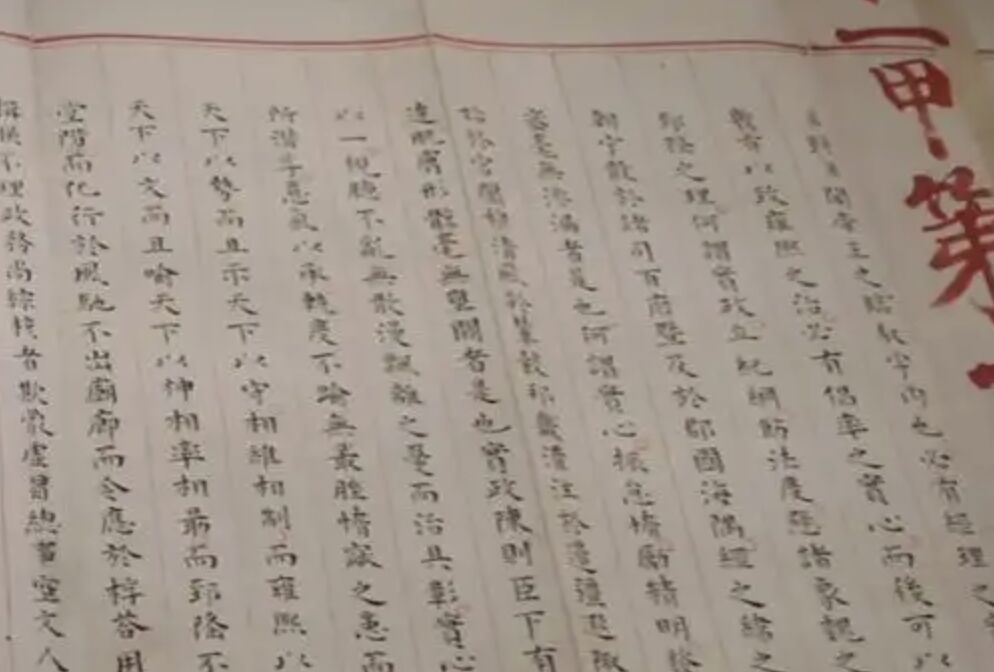 二甲第一
臣對臣聞帝王之臨馭宇內也必有經理之
致雍熙之治必有倡率之實心而後可以
郅隆之理何謂實政立紀綱飭法度懸諸象魏之
朝宁散於諸司百府暨及於郡國海隅經之緯之
嚴密毫無滲漏者是也何謂實心振怠惰勵精明發
始於宮闈穆清風於輦轂邦畿灌注於邊疆遐陬
達肌膚形骸毫無壅閼者是也實政陳則臣下有
以一視聽不亂無散漫飄離之憂而治具彰實心
所潛孚意氣以承軌度不踰無叢脞惰窳之患而
天下以勢而且示天下以守相維相制而雍熙以
天下以文而且喻天下以神相率相勖而郅隆不
堂階而化行於風馳不出廟廊而令應於桴答用
不理政務尚綜核者欺蒙虛冒總事空文人